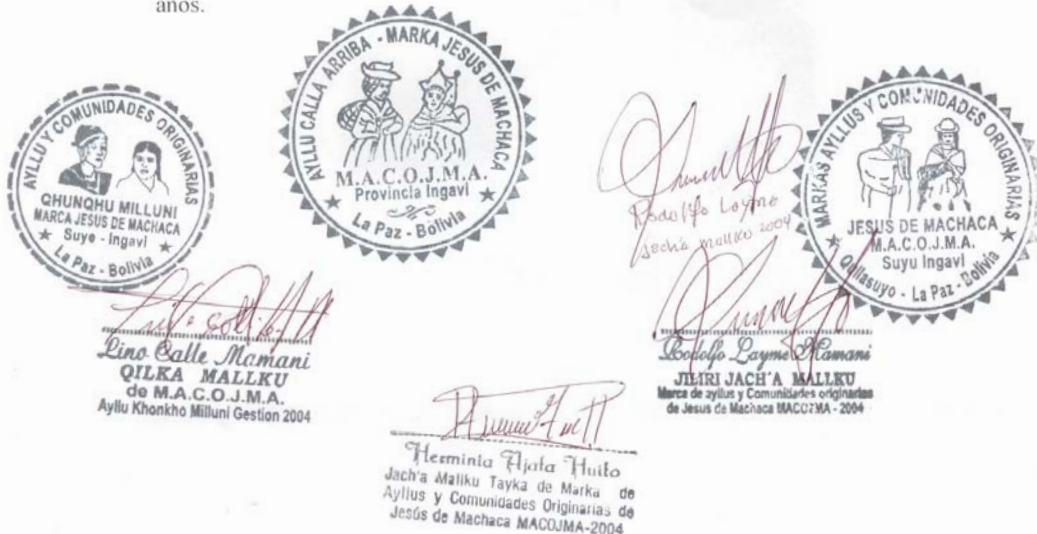 anos.
AYLLU Y COMUNIDADES ORIGINARIAS
QHUNQHU MILLUNI
MARCA JESUS DE MACHACA
Suyo - Ingavi
La Paz - Bolivia
AYLLU CALLA ARRIBA - MARKA JESUS DE MACHACA
M.A.C.O.J.M.A.
Provincia Ingavi
La Paz - Bolivia
Rodolfo Layme
Jach'a Mallko 2004
MARKAS AYLLUS Y COMUNIDADES ORIGINARIAS
JESUS DE MACHACA
M.A.C.O.J.M.A.
Suyu Ingavi
Qullasuyo - La Paz - Bolivia
Lino Calle Mamani
QILKA MALLKU
de M.A.C.O.J.M.A.
Ayllu Khonkho Milluni Gestion 2004
Rodolfo Layme Mamani
JILIRI JACH'A MALLKU
Marca de ayllus y Comunidades originarias
de Jesus de Machaca MACOJMA - 2004
Herminia Ajata Huito
Jach'a Mallku Tayka de Marka de
Ayllus y Comunidades Originarias de
Jesús de Machaca MACOJMA-2004